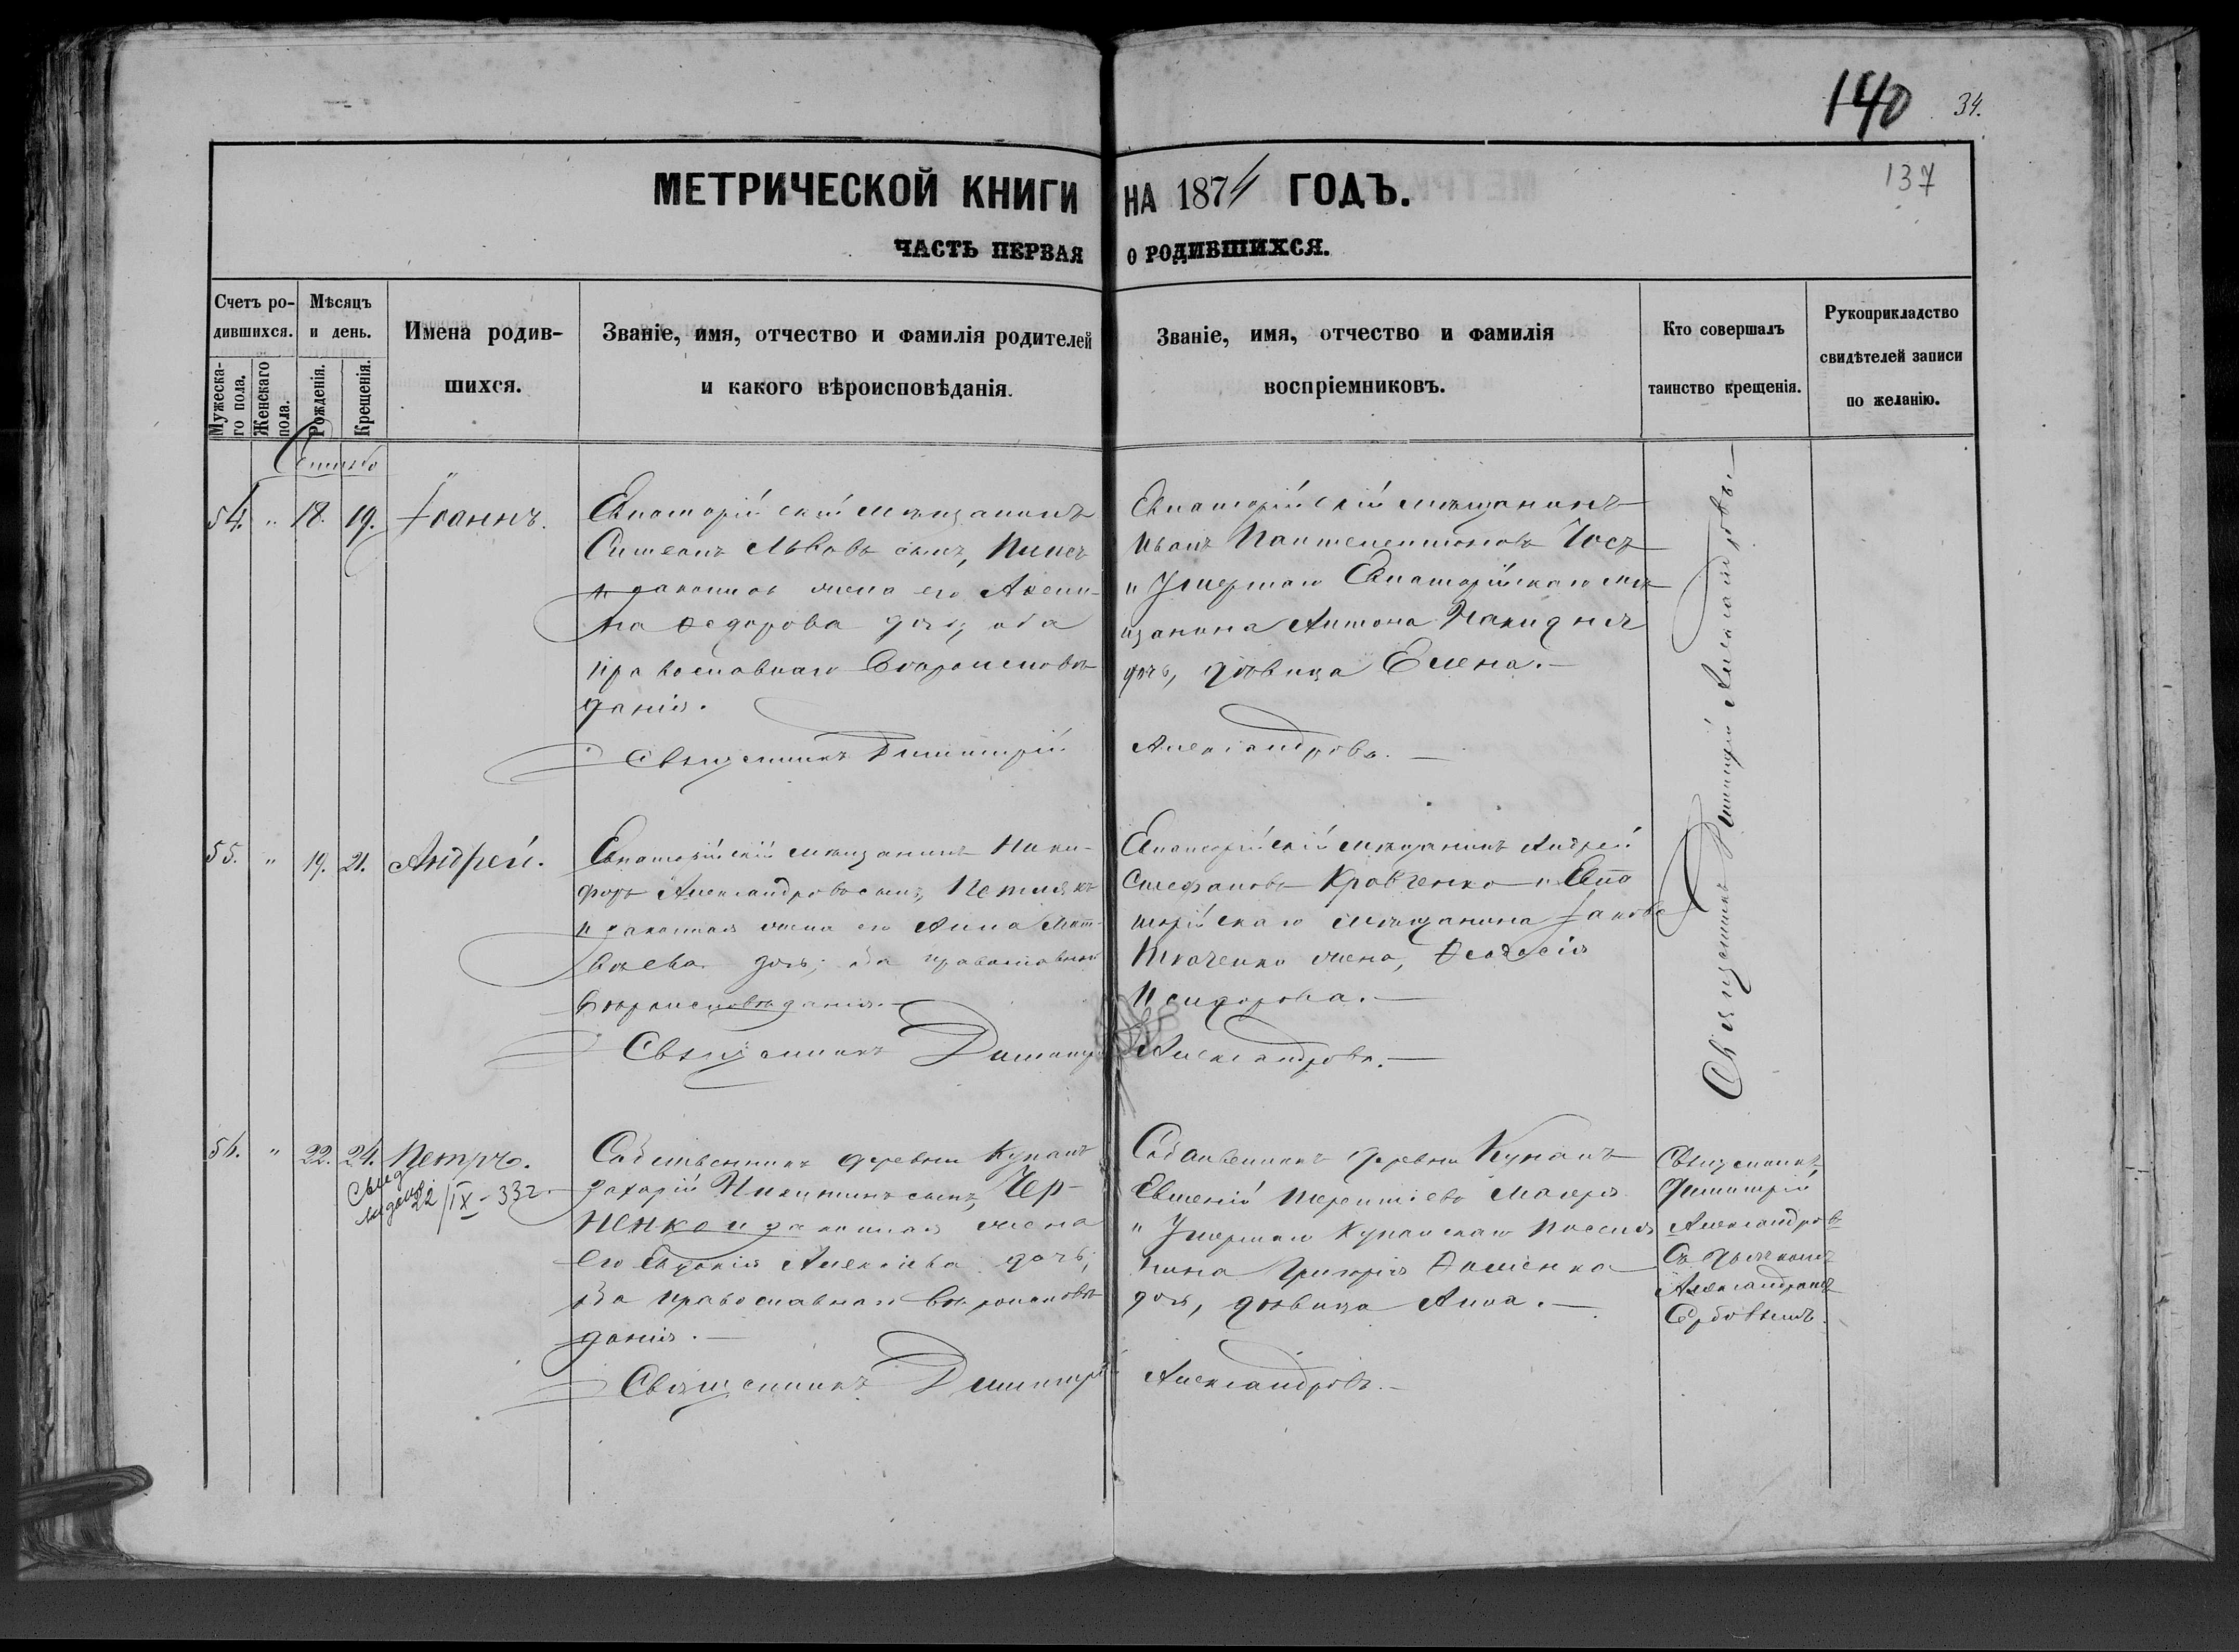 140 34.
137
МЕТРИЧЕСКОЙ КНИГИ НА 1874 ГОДЪ.
ЧАСТЬ ПЕРВАЯ О РОДИВШИХСЯ.
Счетъ ро-
дившихся.
Мужеска-
го пола.
Женскаго
пола.
Мѣсяцъ
и день.
Рожденія.
Крещенія.
Имена родив-
шихся.
Званіе, имя, отчество и фамилія родителей
и какого вѣроисповѣданія.
Званіе, имя, отчество и фамилія
воспріемниковъ.
Кто совершалъ
таинство крещенія.
Рукоприкладство
свидѣтелей записи
по желанію.
54. " 18. 19. Іоаннъ.
Евпаторійскій мѣщанинъ
Симеонъ Львовъ сынъ,
и законная жена его Аксин-
ья Ѳедорова дочь, оба
православнаго вѣроисповѣ-
данія.
Священникъ Димитрій
Евпаторійскій мѣщанинъ
Иванъ Пантелеимоновъ
и Умершаго Евпаторійскаго мѣ-
щанина Антона
дочь, дѣвица Елена.—
Александровъ.—
Священникъ Димитрій Александровъ.—
55. " 19. 21. Андрей.
Евпаторійскій мѣщанинъ Ники-
форъ Александровъ сынъ,
и законная жена его Анна Мат-
вѣева дочь; оба православнаго
вѣроисповѣданія.—
Священникъ Димитрій
Евпаторійскій мѣщанинъ Андрей
Стефановъ Кравченко и Евпа
торійскаго мѣщанина Іакова
Ткаченко жена, Ѳеодосія
Исидорова.—
Александровъ.—
56. " 22. 24. Петръ.
22/IX-33г.
Собственникъ деревни Кунанъ
Захарій Никитинъ сынъ, Чер-
ненко и законная жена
его Евдокія Алексіева дочь;
оба православнаго вѣроисповѣ
данія.—
Священникъ Димитрій
Собственникъ деревни Кунанъ
Евменій Терентіевъ
и Умершаго Кунанскаго поселя
нина Григорія
дочь, дѣвица Анна.—
Александровъ.—
Священникъ
Димитрій
Александровъ
Съ дьячкомъ
Александромъ
Сербовымъ.